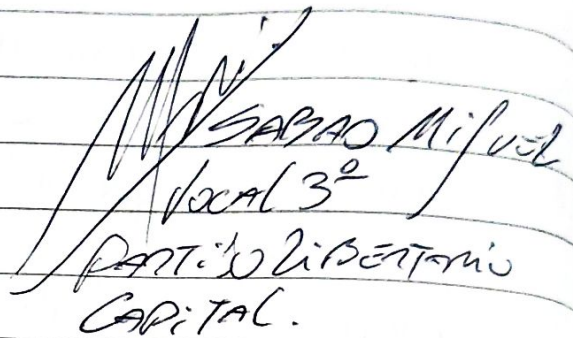 SABAO Miguel
Vocal 3º
PARTIDO LIBERTARIO
CAPITAL.